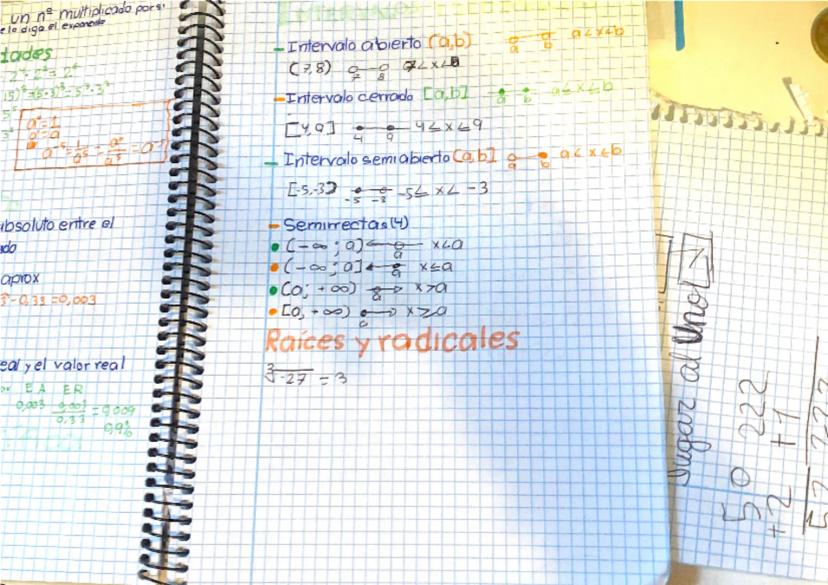 un nº multiplicado por si
e lo diga el exponente
dades
absoluto entre el
do
aprox
-0,33 = 0,003
eal y el valor real
EA ER
0,003
0,33
= 0,009
0,9%
- Intervalo abierto (a,b) a b a<x<b
(7,8) 7 8 7<x<8
- Intervalo cerrado [a,b] a b a≤x≤b
[4,9] 4 9 4≤x≤9
- Intervalo semiabierto (a,b] a b a<x≤b
[-5,-3) -5 -3 -5≤x<-3
- Semirrectas (4)
(-∞; a) a x<a
(-∞; a] a x≤a
(a; +∞) a x>a
[a, +∞) a x≥a
Raíces y radicales
∛-27 = 3
Jugar al Uno!
50 222
+2 +1